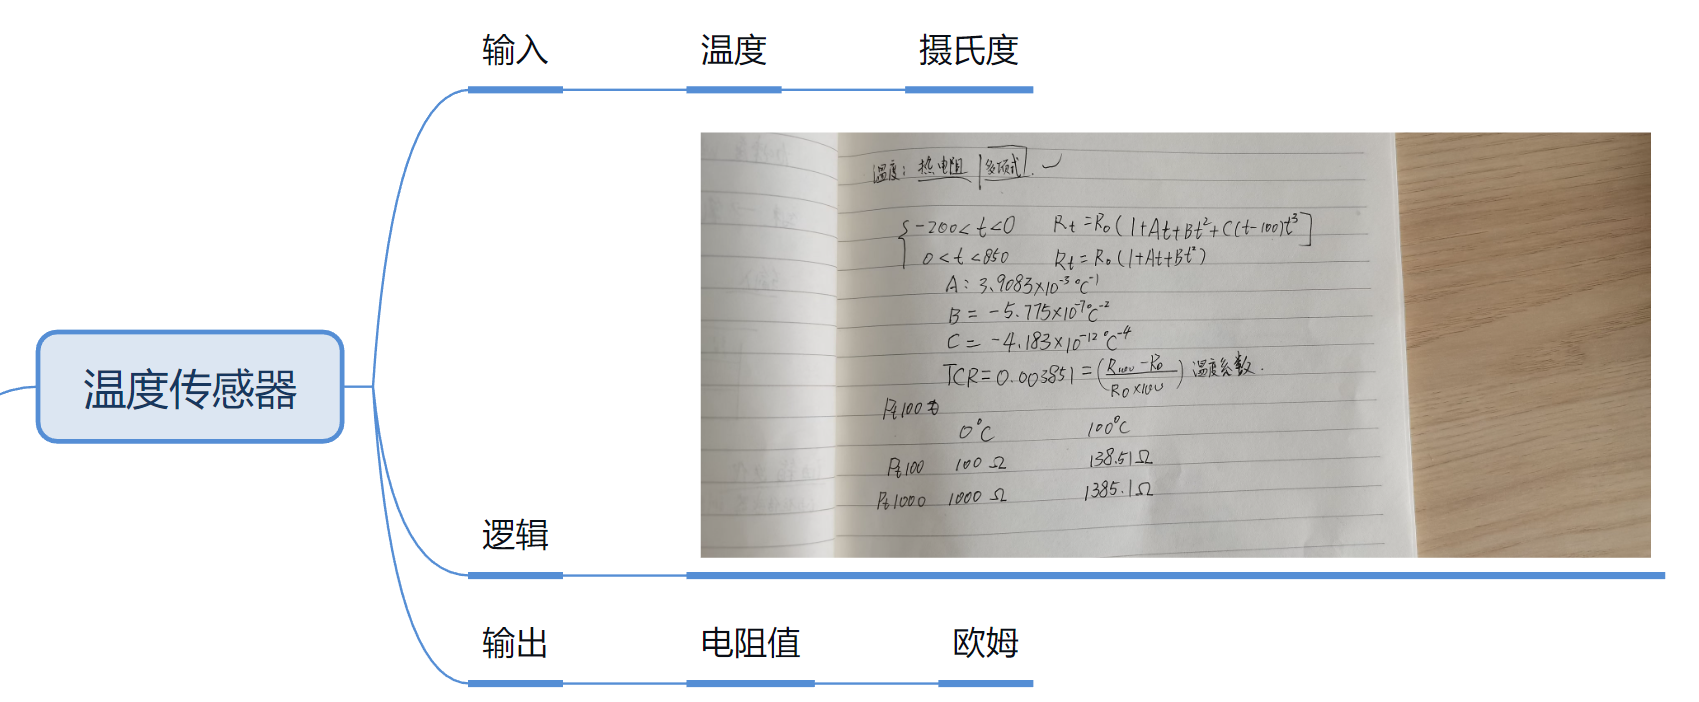 输入 温度 摄氏度
温度传感器
逻辑
温度: 热电阻 |多项式|. ✓
{ -200<t<0 Rt=R0(1+At+Bt²+C(t-100)t³]
0<t<850 Rt=R0(1+At+Bt²)
A: 3.9083×10⁻³ °C⁻¹
B = -5.775×10⁻⁷ °C⁻²
C = -4.183×10⁻¹² °C⁻⁴
TCR=0.003851=(R100-R0/R0×100) 温度系数.
Pt100
0°C 100°C
Pt100 100Ω 138.51Ω
Pt1000 1000Ω 1385.1Ω
输出 电阻值 欧姆